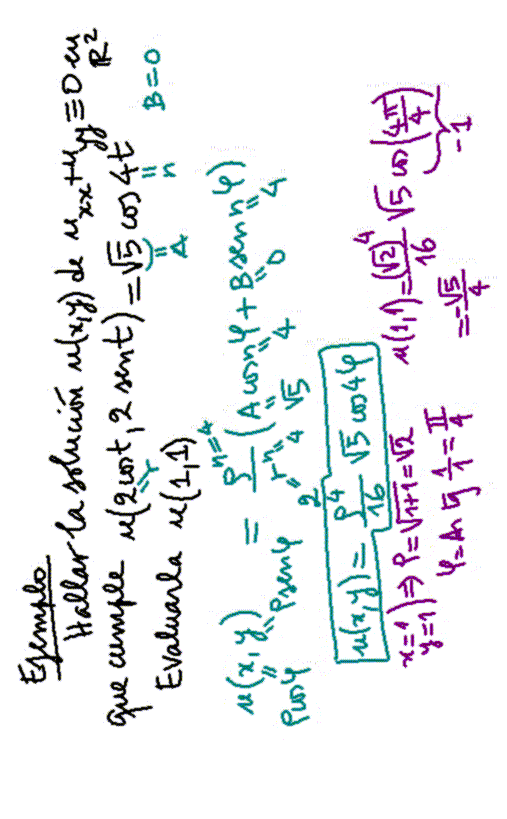 Ejemplo
Hallar la solución u(x,y) de u_xx + u_yy = 0 en ℝ²
que cumple u(2cos t, 2 sen t) = √5 cos 4t
=r =A =n B=0
Evaluarla u(1,1)
u(x,y) = ρ^(n=4)/r^n (A cos nφ + B sen nφ)
ρcosφ ρsenφ 2 4 √5 4 0 4
u(x,y) = ρ⁴/16 √5 cos 4φ
x=1 y=1) ⇒ ρ=√1+1=√2 u(1,1) = (√2)⁴/16 √5 cos(4π/4)
-1
φ=Arc tg 1/1 = π/4 = -√5/4